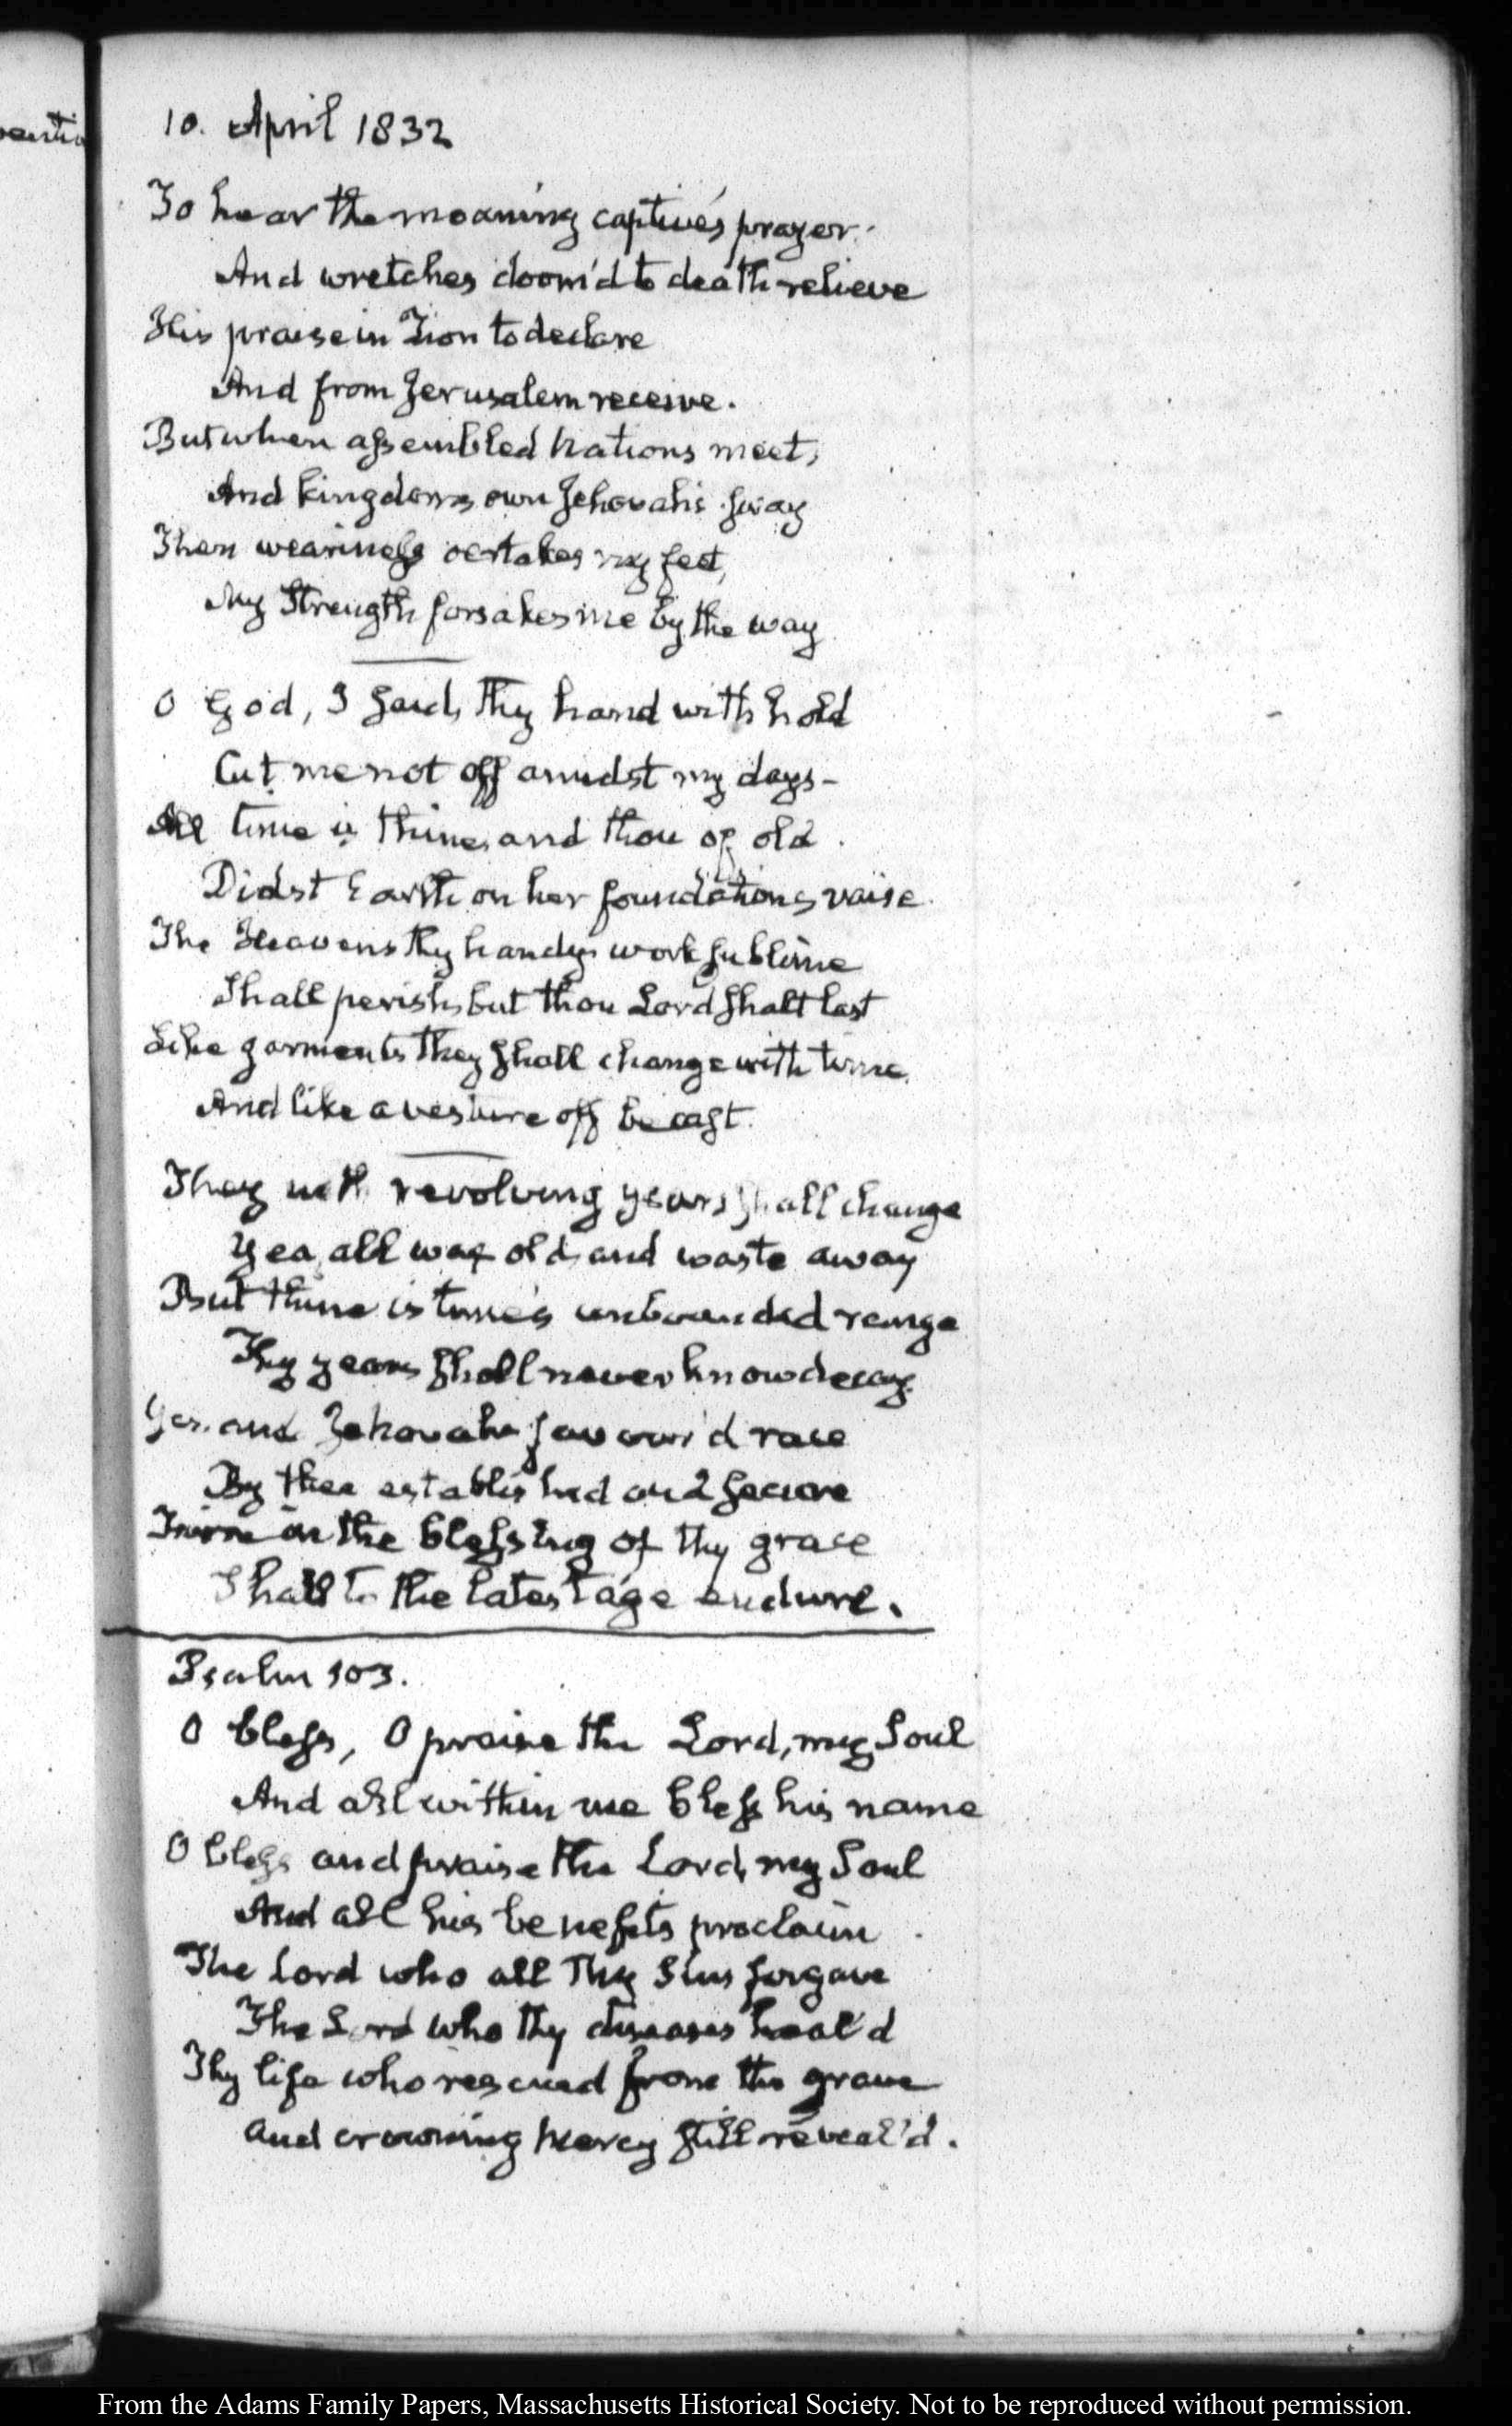 10. April 1832
To hear the moaning captive's prayer.
And wretches doom'd to death relieve
His praise in Zion to declare
And from Jerusalem receive.
But when assembled Nations meet,
And kingdoms own Jehovah's sway
Then weariness o'ertakes my feet,
My Strength forsakes me by the way
O God, I said, thy hand withhold
Cut me not off amidst my days-
All time is thine, and thou of old.
Didst Earth on her foundations raise.
The Heavens thy handy work sublime
Shall perish, but thou Lord shalt last
Like garments they shall change with time.
And like a vesture off be cast.
They with revolving years shall change
Yea, all wax old, and waste away
But thine is time's unbounded range
Thy years shall never know decay.
Yes. and Jehovah favour'd race
By thee established and secure
Firm in the blessing of thy grace
Shall to the latest age endure.
Psalm 103.
O bless, O praise the Lord, my Soul
And all within me bless his name
O bless and praise the Lord, my Soul
And all his benefits proclaim
The Lord who all thy Sins forgave
The Lord who thy diseases heal'd
Thy life who rescued from the grave
And crowning Mercy still reveal'd.
From the Adams Family Papers, Massachusetts Historical Society. Not to be reproduced without permission.